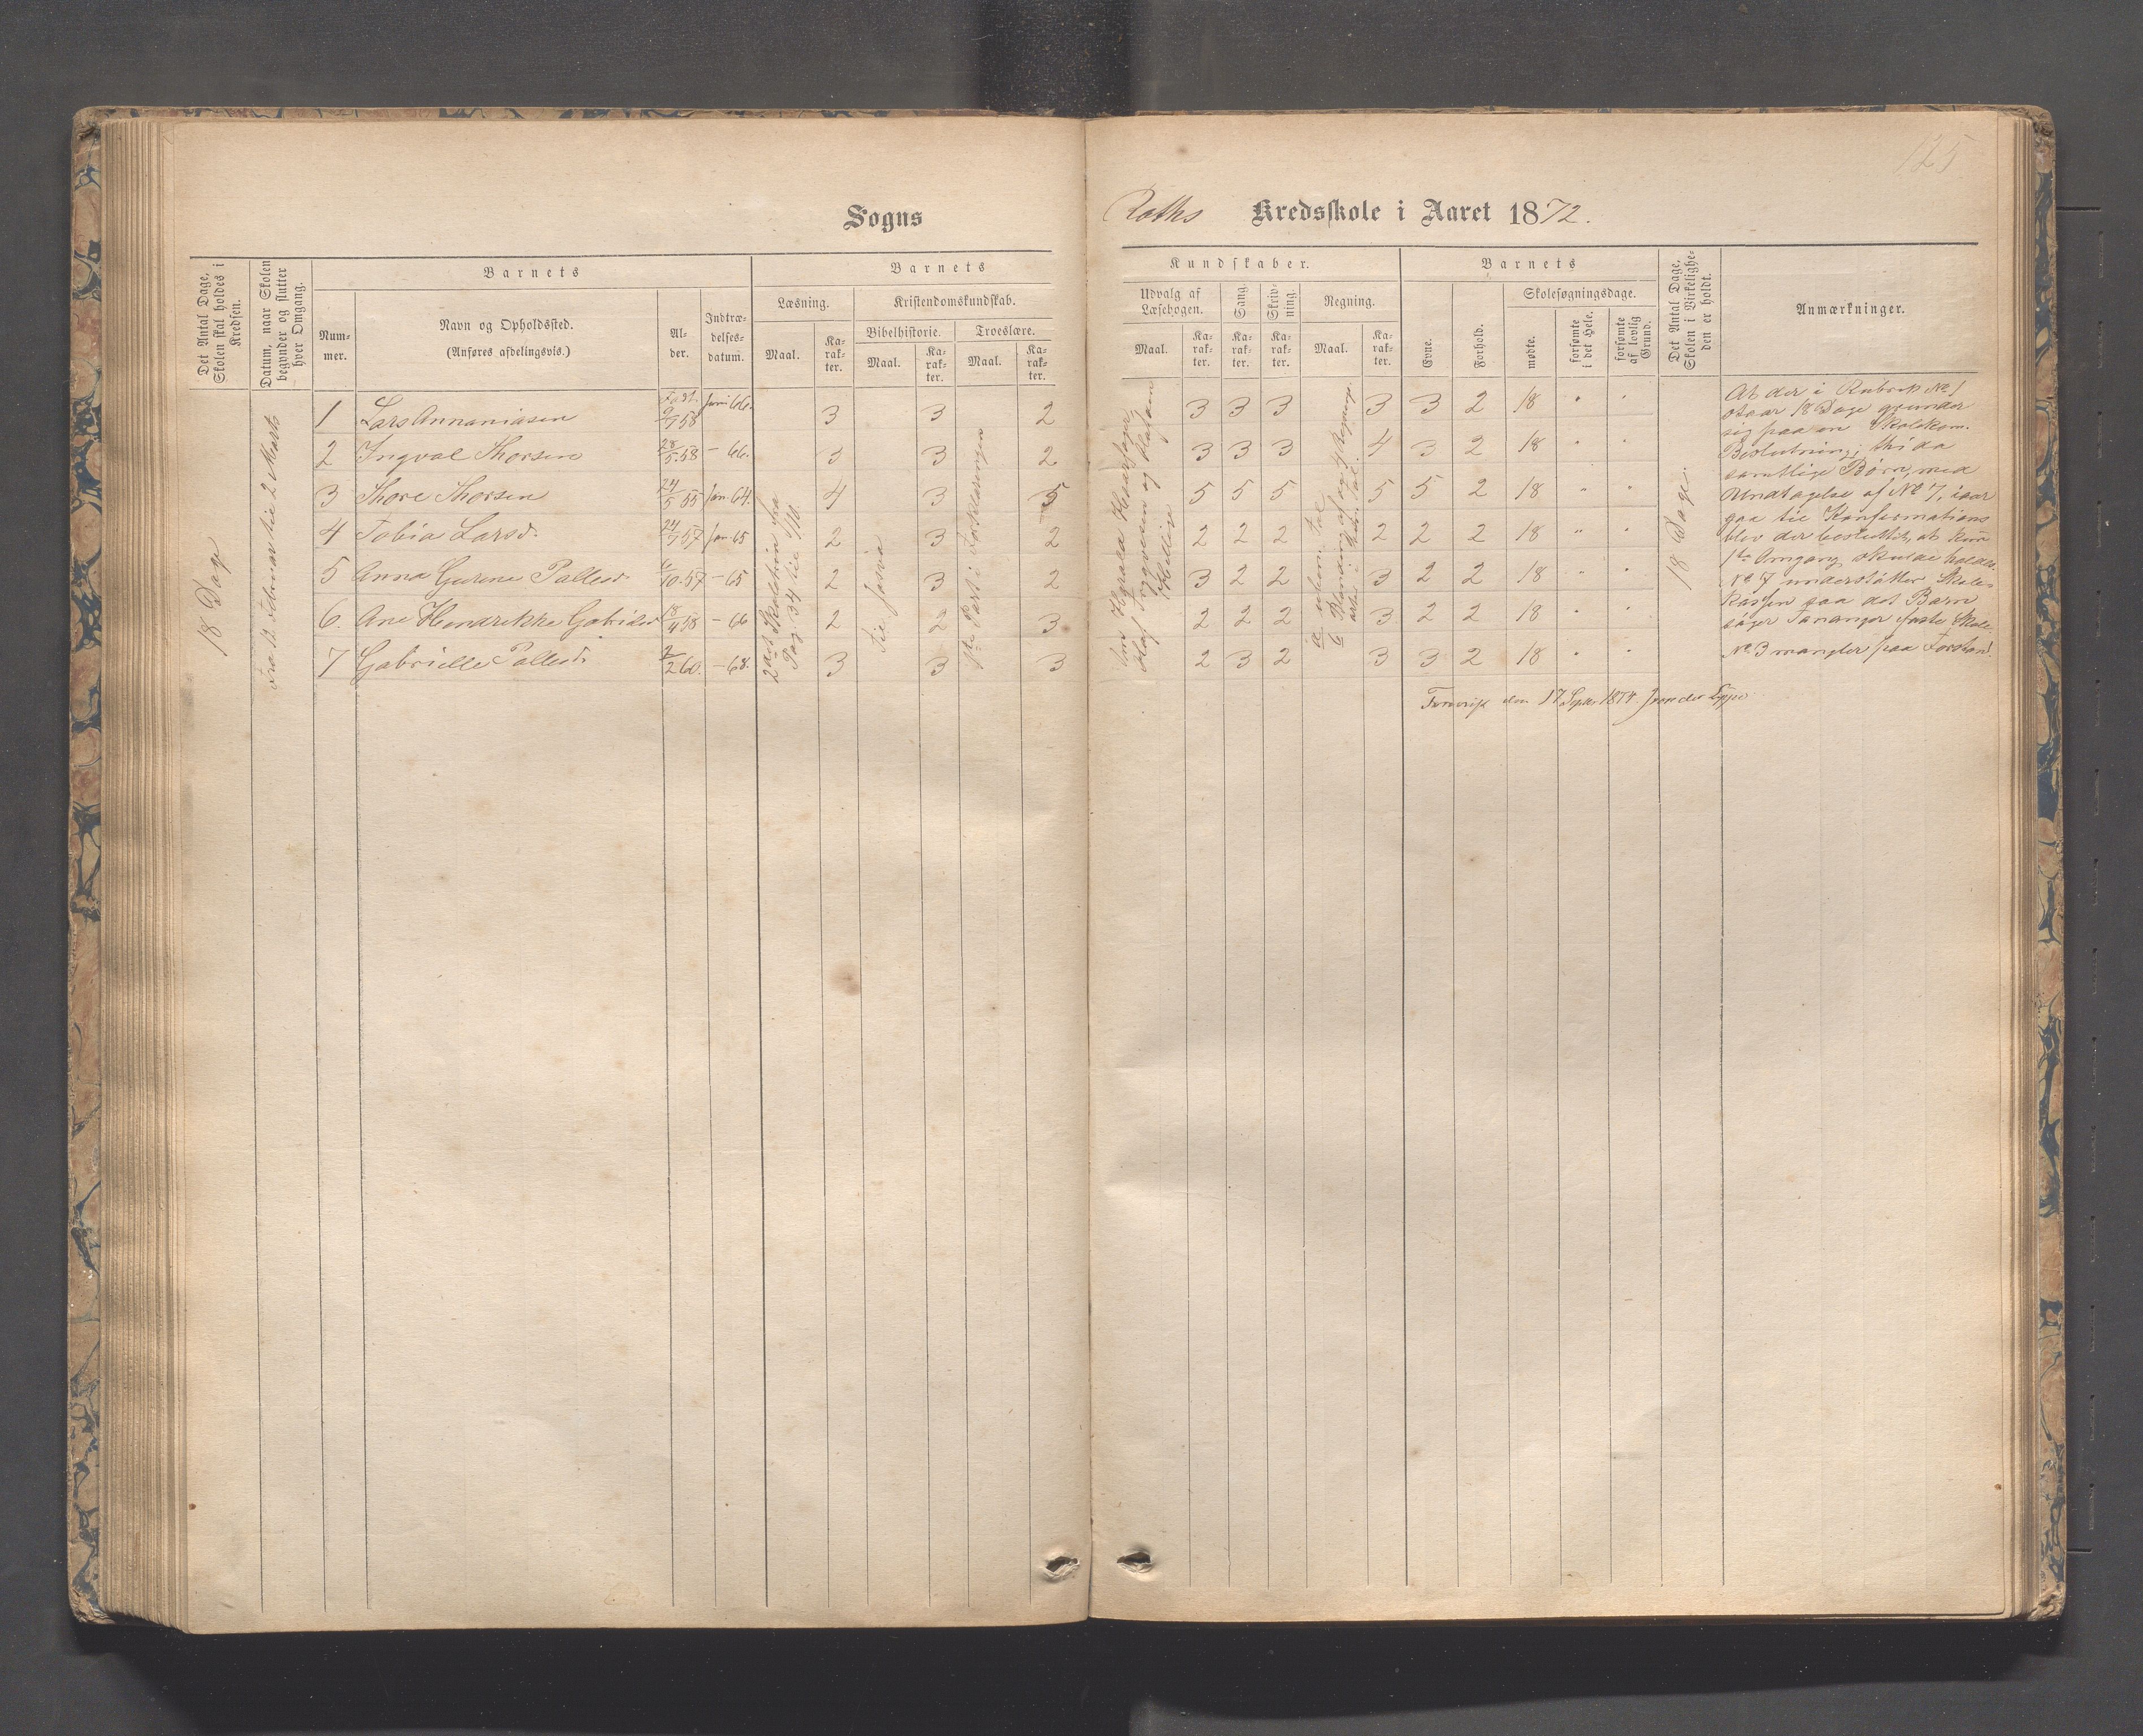 125
Sogns
Raths Kredsskole i Aaret 1872.
Det Antal Dage, Skolen skal holdes i Kredsen.
Datum, naar Skolen begynder og slutter hver Omgang.
Barnets
Nummer.
Navn og Opholdssted.
(Anføres afdelingsvis.)
Alder.
Indtrædelsesdatum.
Barnets
Læsning.
Maal.
Karakter.
Kristendomskundskab.
Bibelhistorie.
Maal.
Karakter.
Troeslære.
Maal.
Karakter.
Kundskaber.
Udvalg af Læsebogen.
Maal.
Karakter.
Sang.
Karakter.
Skrivning.
Karakter.
Regning.
Maal.
Karakter.
Barnets
Evne.
Forhold.
Skolesøgningsdage.
mødte.
forsømte i det Hele.
forsømte af lovlig Grund.
Det Antal Dage, Skolen i Virkeligheden er holdt.
Anmærkninger.
18 Dage
Fra 12 Februar til 2 Marts
Født.
1 Lars Annaniasen 9/7 58 Juni 66. 3 3 2 3 3 3 3 3 2 18 " "
2 Ingval Thorsen 28/5 58 - 66. 3 3 2 3 3 3 4 3 2 18 " "
3 Thore Thorsen 24/5 55 Jan 64. 4 3 5 5 5 5 5 5 2 18 " "
4 Tobia Larsd. 24/7 57 Jan 65 2 3 2 2 2 2 2 2 2 18 " "
5 Anna Gurine Pallesd. 6/10 57 - 65 2 3 2 3 2 2 3 2 2 18 " "
6. Ane Hendrekke Gabrielsd 18/4 58 - 66 2 2 3 2 2 2 3 2 2 18 " "
7 Gabrielle Pallesd. 2/2 60. - 68. 3 3 3 2 3 2 3 3 2 18 " "
Pag 34 til
til Josva
1ste Part i Forklaringen
18 Dage.
At der i Rubrik No 1
staar 18 Dage grunder
sig paa en Skolekom.
Beslutning; thi da
samtlige Børn, med
Undtagelse af No 7, iaar
gaa til Konfirmations
blev det besluttet, at kun
1ste Omgang skulde holdes.
No 7 understøtter Skole-
kassen paa det Barn
søger Tananger faste Skole.
No 3 mangler paa Forstand.
den 17 Septbr 1874